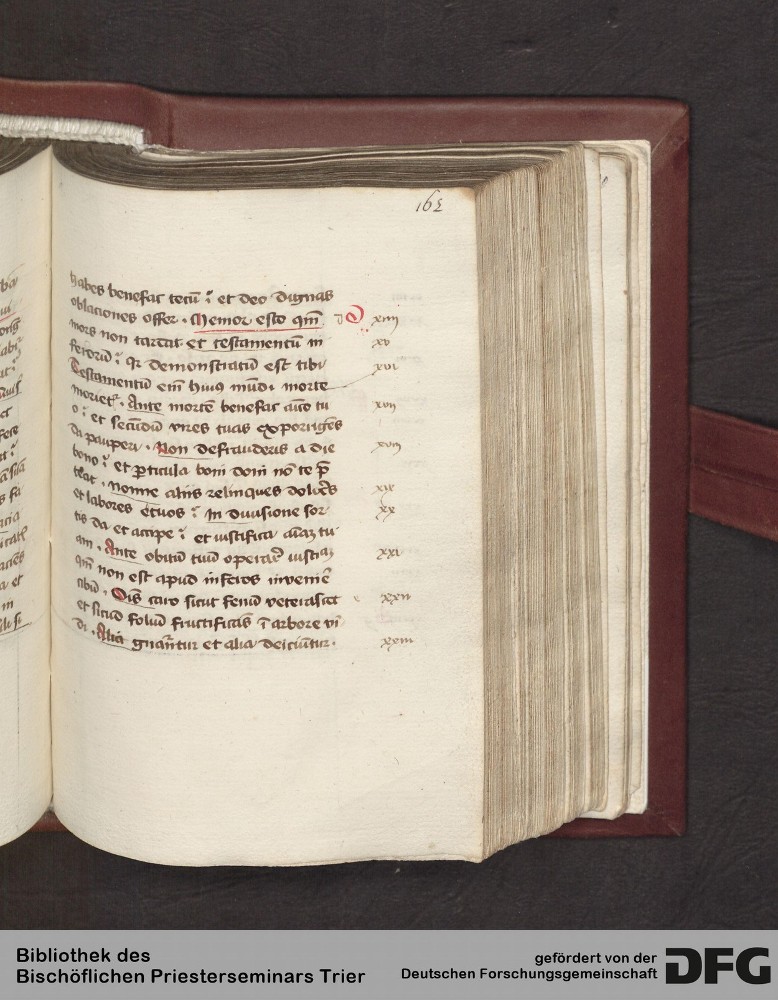 162
habes benefac tecū et deo dignas
oblaciones offer . Memor esto qm̄ D xiiii
mors non tardat et testamentū in xv
feroꝝ qꝛ demonstratū est tibi xvi
Testamentū em̄ huiꝰ mūdi morte
morietᷣ . Ante mortē benefac aīco tu xvii
o et secūdū vires tuas exporigēs
da pauperi . Non defrauderis a die xviii
bono et ꝑticula boni doni nō te p̄
t̄eat . nonne aliis relinques dolores xix
et labores tuos In diuisione sor xx
tis da et accipe et iustifica aīaꝫ tu
am . Ante obitū tuū operare iusticiā xxi
qm̄ non est apud inferos inuenire
cibū . Ois caro sicut fenū veterascet xxii
et sicud foliū fructificās ī arbore vi
di . Alia gn̄antur et alia deiciūtur . xxiii
Bibliothek des
Bischöflichen Priesterseminars Trier
gefördert von der
Deutschen Forschungsgemeinschaft
DFG